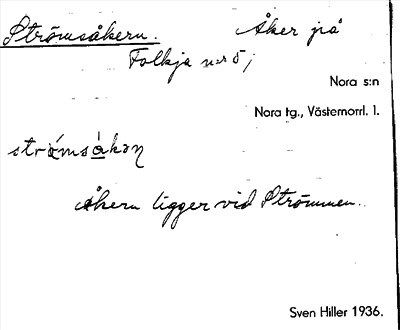 Strömsåkern. Åker på
Folkja nr 5,
Nora s:n
Nora tg., Västernorrl. l.
Åkern ligger vid Strömmen.
Sven Hiller 1936.